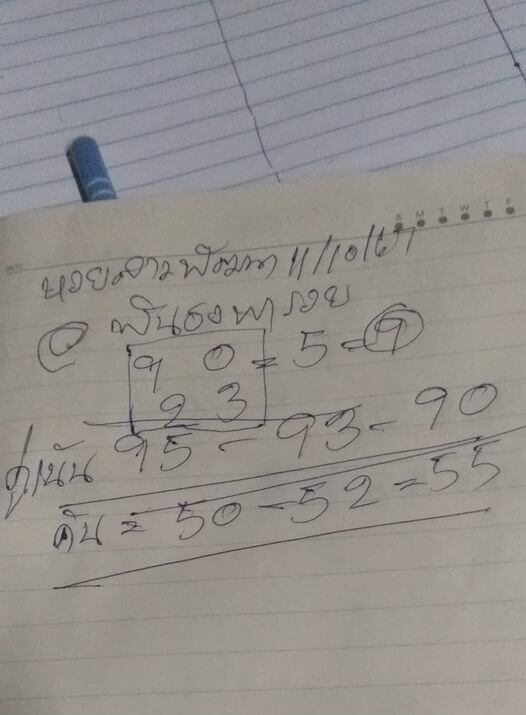 S M T W T F
หวยลาวพัฒนา 11/10/67
@ ฟันธงพารวย
9 0 = 5 - 9
2 3
คู่เน้น 95 - 93 - 90
ดัน = 50 - 52 = 55